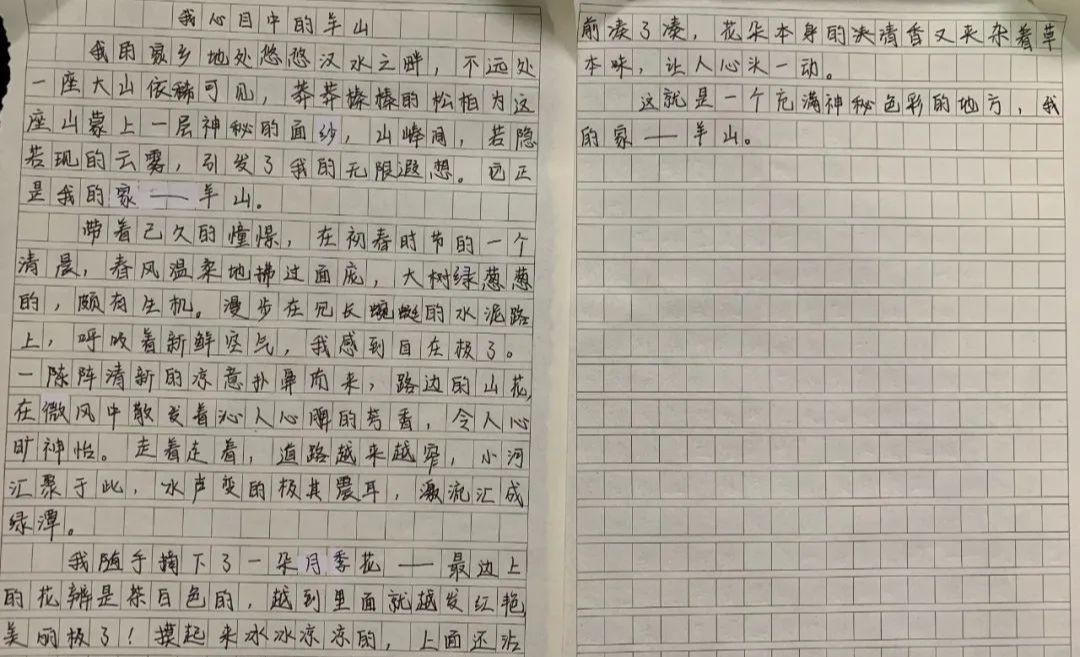 我心目中的羊山
我的家乡地处悠悠汉水之畔，不远处
一座大山依稀可见，莽莽榛榛的松柏为这
座山蒙上一层神秘的面纱，山峰间，若隐
若现的云雾，引发了我的无限遐想。这正
是我的家——羊山。
带着已久的憧憬，在初春时节的一个
清晨，春风温柔地拂过面庞，大树绿葱葱
的，颇有生机。漫步在冗长蜿蜒的水泥路
上，呼吸着新鲜空气，我感到自在极了。
一陈阵清新的凉意扑鼻而来，路边的山花，
在微风中散发着沁人心脾的芳香，令人心
旷神怡。走着走着，道路越来越窄，小河
汇聚于此，水声变的极其震耳，激流汇成
绿潭。
我随手摘下了一朵月季花——最边上
的花辨是茶白色的，越到里面就越发红艳
美丽极了！摸起来冰冰凉凉的，上面还沾
前凑了凑，花朵本身的淡清香又夹杂着草
本味，让人心头一动。
这就是一个充满神秘色彩的地方，我
的家——羊山。